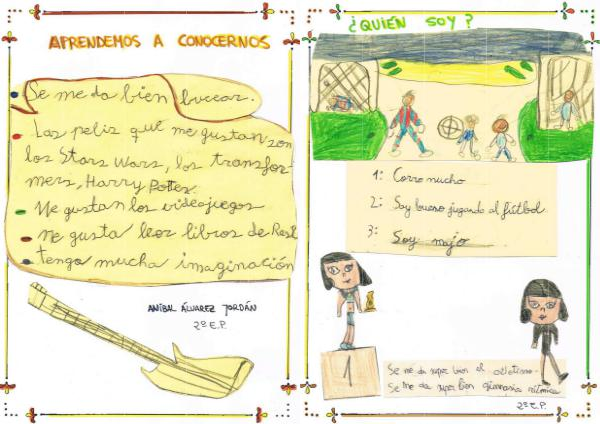 APRENDEMOS A CONOCERNOS
Se me da bien bucear.
Las pelis que me gustan son
los Stars Wars, los transfor-
mers, Harry Potter
Me gustan los videojuegos
me gusta leer libros de
tengo mucha imaginación
ANÍBAL ÁLVAREZ JORDÁN
2º E.P.
¿QUIÉN SOY?
1: Corro mucho
2: Soy bueno jugando al fútbol
3: Soy majo
1
Se me da super bien el atletismo
Se me da super bien gimnasia rítmica
2º E.P.